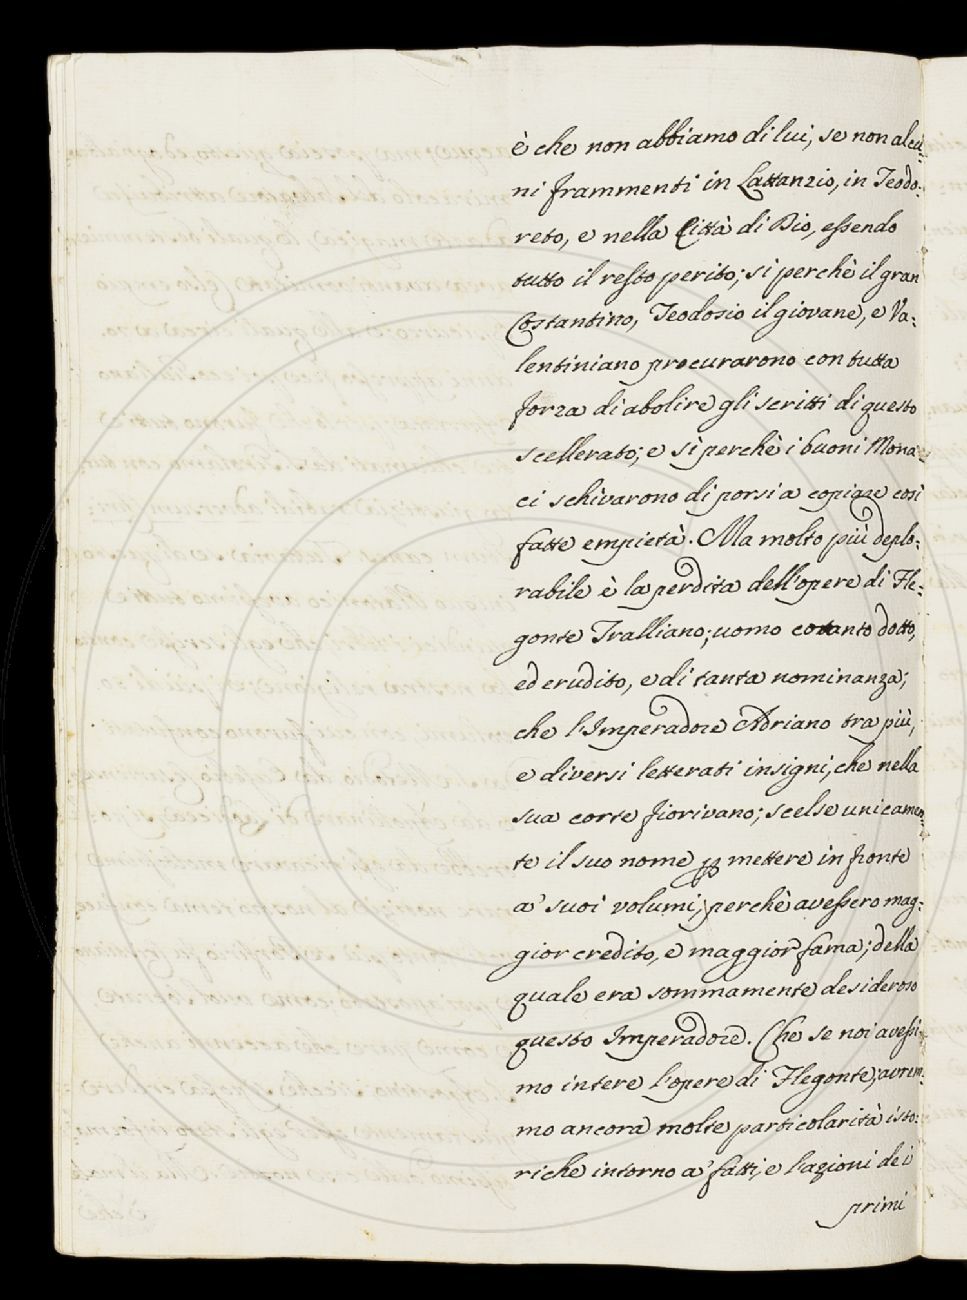 è che non abbiamo di lui, se non alcu:
ni frammenti in Lattanzio, in Teodo:
reto, e nella Città di Dio, essendo
tutto il resto perito; sì perchè il gran
Costantino, Teodosio il giovane, e Va:
lentiniano procurarono con tutta
forza di abolire gli scritti di questo
scellerato; e sì perchè i buoni Mona:
ci schivarono di porsi a copiare così
fatte empietà. Ma molto più deplo:
rabile è la perdita dell'opere di Fle:
gonte Tralliano; uomo cotanto dotto,
ed erudito, e di tanta nominanza;
che l'Imperadore Adriano tra più,
e diversi letterati insigni, che nella
sua corte fiorivano; scelse unicamen:
te il suo nome p mettere in fronte
a' suoi volumi, perchè avessero mag:
gior credito, e maggior fama; della
quale era sommamente desideroso
questo Imperadore. Che se noi avessi:
mo intere l'opere di Flegonte; avrem:
mo ancora molte particolarità isto:
riche intorno a' fatti, e l'azioni dei
primi